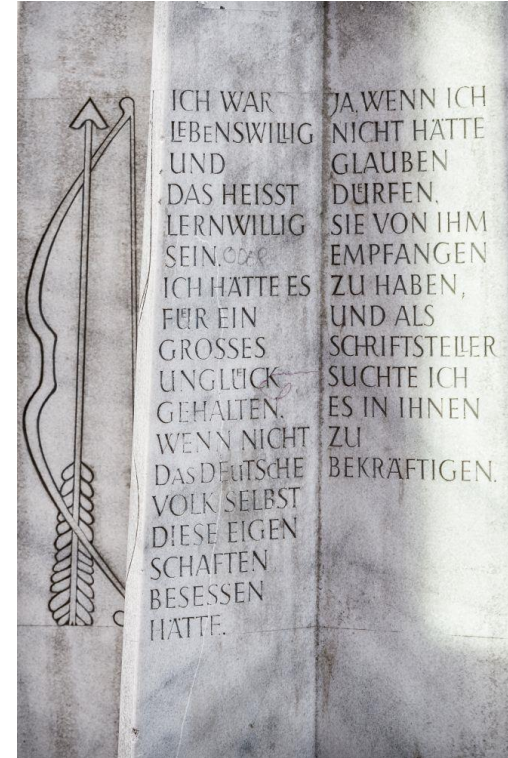 ICH WAR
LEBENSWILLIG
UND
DAS HEISST
LERNWILLIG
SEIN.
ICH HÄTTE ES
FÜR EIN
GROSSES
UNGLÜCK
GEHALTEN,
WENN NICHT
DAS DEUTSCHE
VOLK SELBST
DIESE EIGEN
SCHAFTEN
BESESSEN
HÄTTE.
JA, WENN ICH
NICHT HÄTTE
GLAUBEN
DÜRFEN,
SIE VON IHM
EMPFANGEN
ZU HABEN,
UND ALS
SCHRIFTSTELLER
SUCHTE ICH
ES IN IHNEN
ZU
BEKRÄFTIGEN.